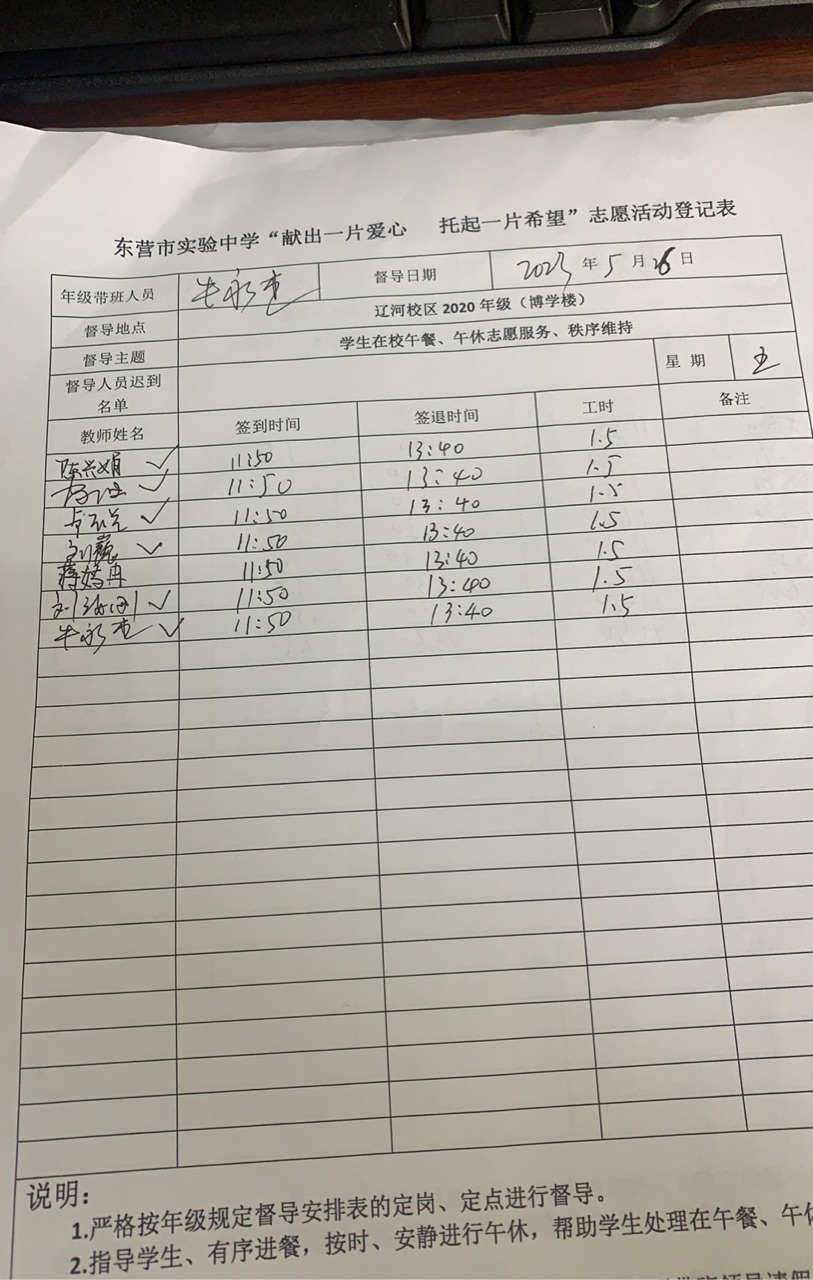 东营市实验中学“献出一片爱心 托起一片希望”志愿活动登记表
年级带班人员 牛永杰 督导日期 2023年5月26日
督导地点 辽河校区2020年级(博学楼)
督导主题 学生在校午餐、午休志愿服务、秩序维持
督导人员迟到名单 星 期 五
教师姓名 签到时间 签退时间 工时 备注
陈兴娟 ✓ 11:50 13:40 1.5
✓ 11:50 13:40 1.5
✓ 11:50 13:40 1.5
刘巍 ✓ 11:50 13:40 1.5
蒋婷冉 11:50 13:40 1.5
✓ 11:50 13:40 1.5
牛永杰 ✓ 11:50 13:40 1.5
说明:
1.严格按年级规定督导安排表的定岗、定点进行督导。
2.指导学生、有序进餐,按时、安静进行午休,帮助学生处理在午餐、午休